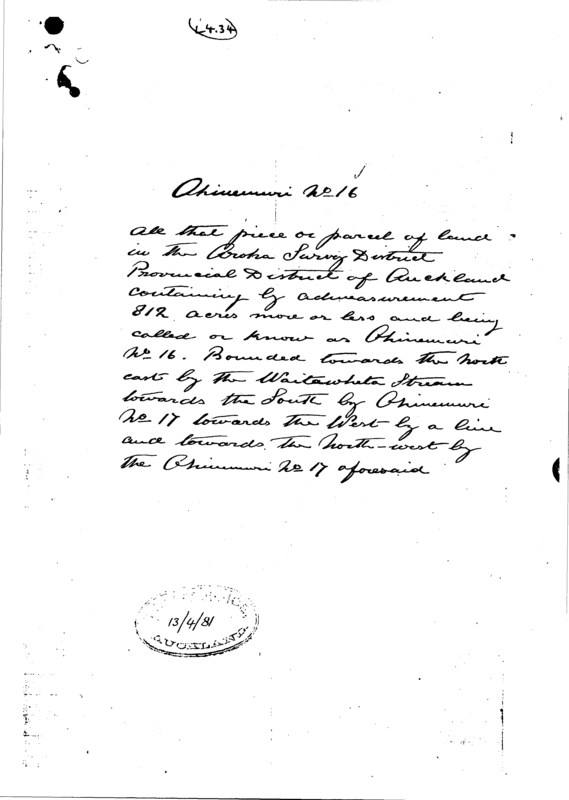 L4.34
Ohinemuri No 16
All that piece or parcel of land
in the Aroha Survey District
Provincial District of Auckland
containing by admeasurement
812 acres more or less and being
called or know as Ohinemuri
No 16. Bounded towards the North
east by the Waitawheta Stream
towards the South by Ohinemuri
No 17 towards the West by a line
and towards the North-west by
the Ohinemuri No 17 aforesaid
13/4/81
AUCKLAND.